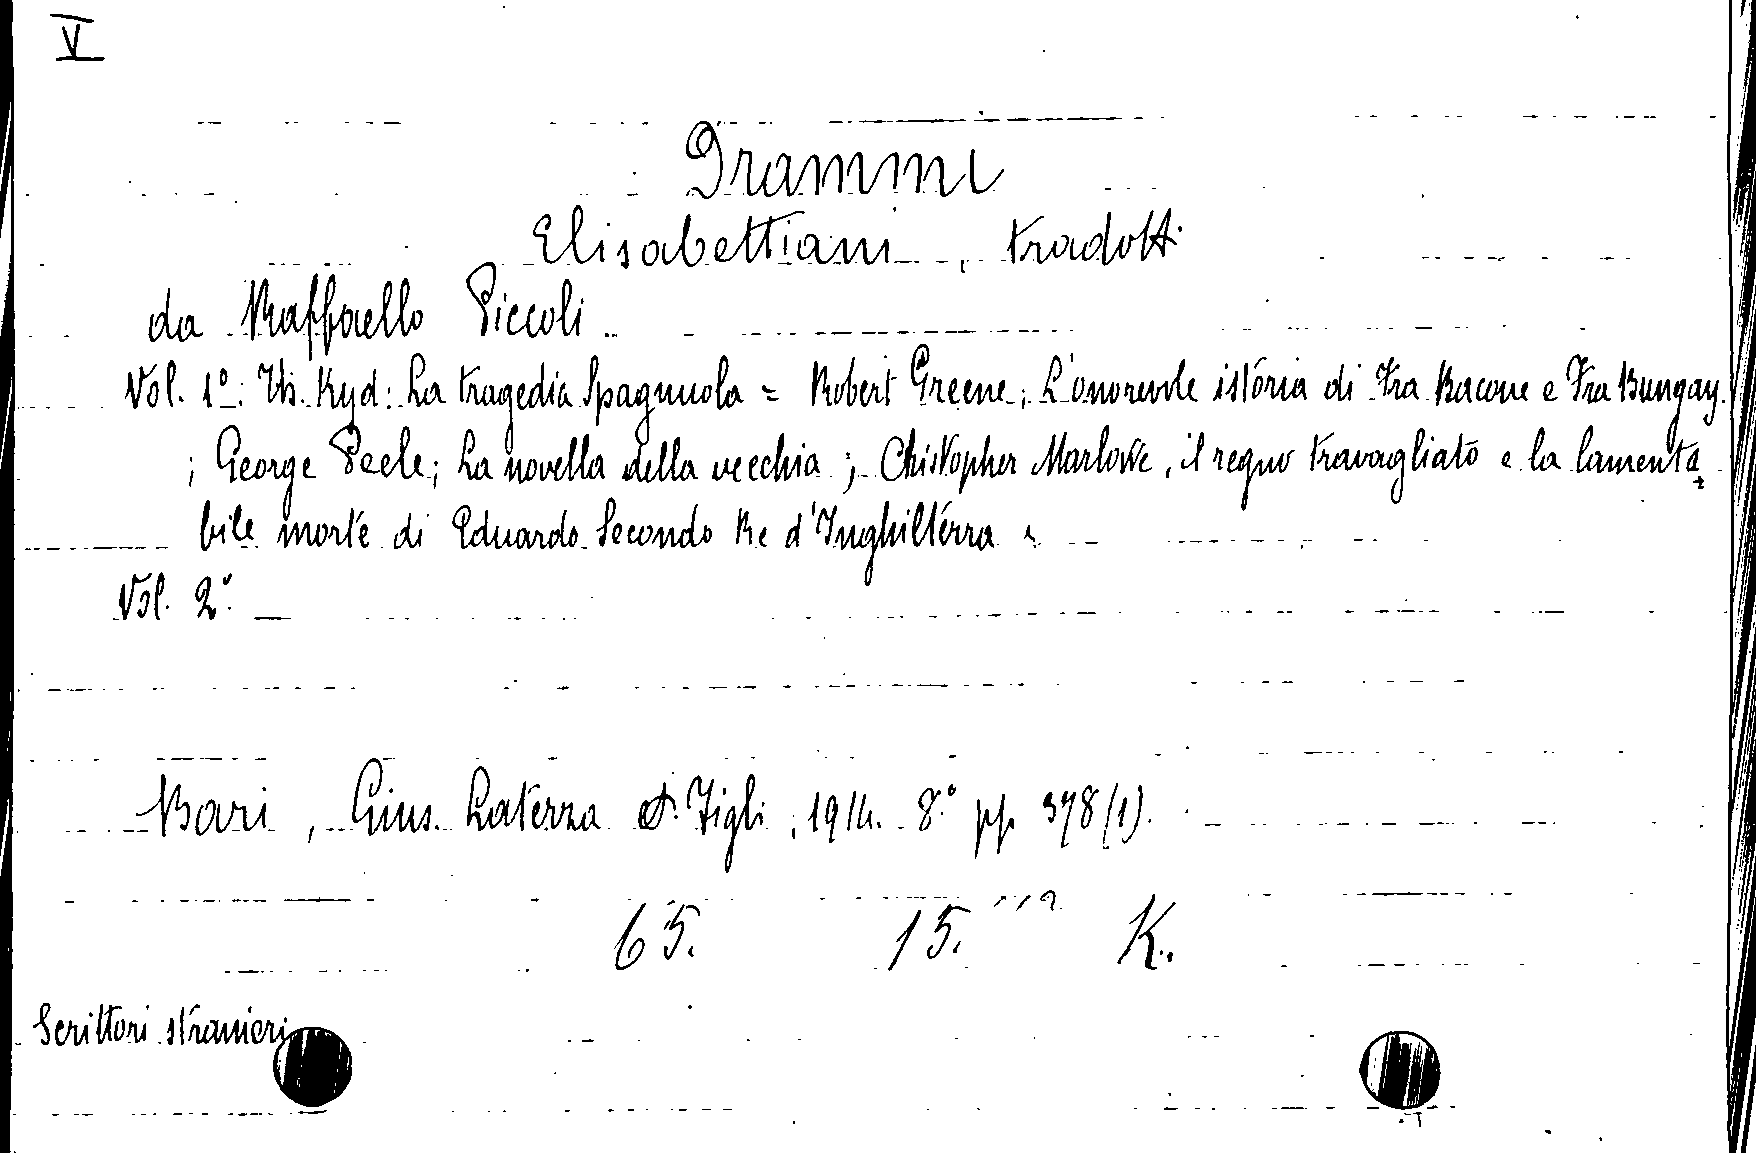 V
Drammi
Elisabettiani, tradotti
da Raffaello Piccoli
Vol. 1º: Th. Kyd: La tragedia Spagnuola = Robert Greene; L'onorevole istoria di Fra Bacone e Fra Bungay.
; George Peele; La novella della vecchia; Chistopher Marlowe, il regno travagliato e la lamenta
bile morte di Eduardo Secondo Re d'Inghilterra
Vol. 2º
Bari, Gius. Laterza & Figli, 1914. 8º pp 378 (1).
65. 15. K.
Scrittori stranieri